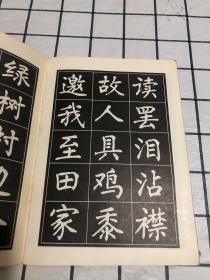 读罢泪沾襟
故人具鸡黍
邀我至田家
绿树村